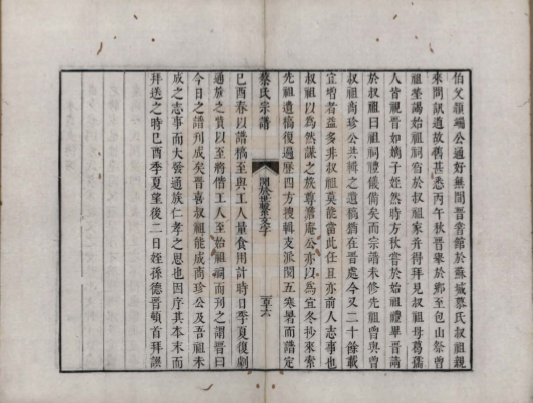 伯父顓端公通好無間晉嘗館於蘇城慕氏叔祖親
來問訊道故舊甚悉丙午秋晉舉於鄉至包山祭曾
祖塋謁始祖祠宿於叔祖家并得拜見叔祖母葛孺
人皆視晉如嫡子姪然時方秋嘗於始祖禮畢晉請
於叔祖曰祖祠禮儀備矣而宗譜未修先祖曾與曾
叔祖尚珍公共輯之遺稿猶在晉處今又二十餘載
宜增者益多非叔祖莫能當此任且亦前人志事也
叔祖以為然謀之族尊澹庵公亦以為宜冬抄來索
先祖遺稿復遍歷四方搜輯支派閱五寒暑而譜定
蔡氏宗譜
闔族世繫支序
己酉春以譜稿至與工人量食用計時日季夏復劇
通族之貲以至將偕工人至始祖祠而刊之謂晉曰
今日之譜刊成矣晉喜叔祖能成尚珍公及吾祖未
成之志事而大愛通族仁孝之思也因序其本末而
拜送之時己酉季夏望後二日姪孫德晉頓首拜譔